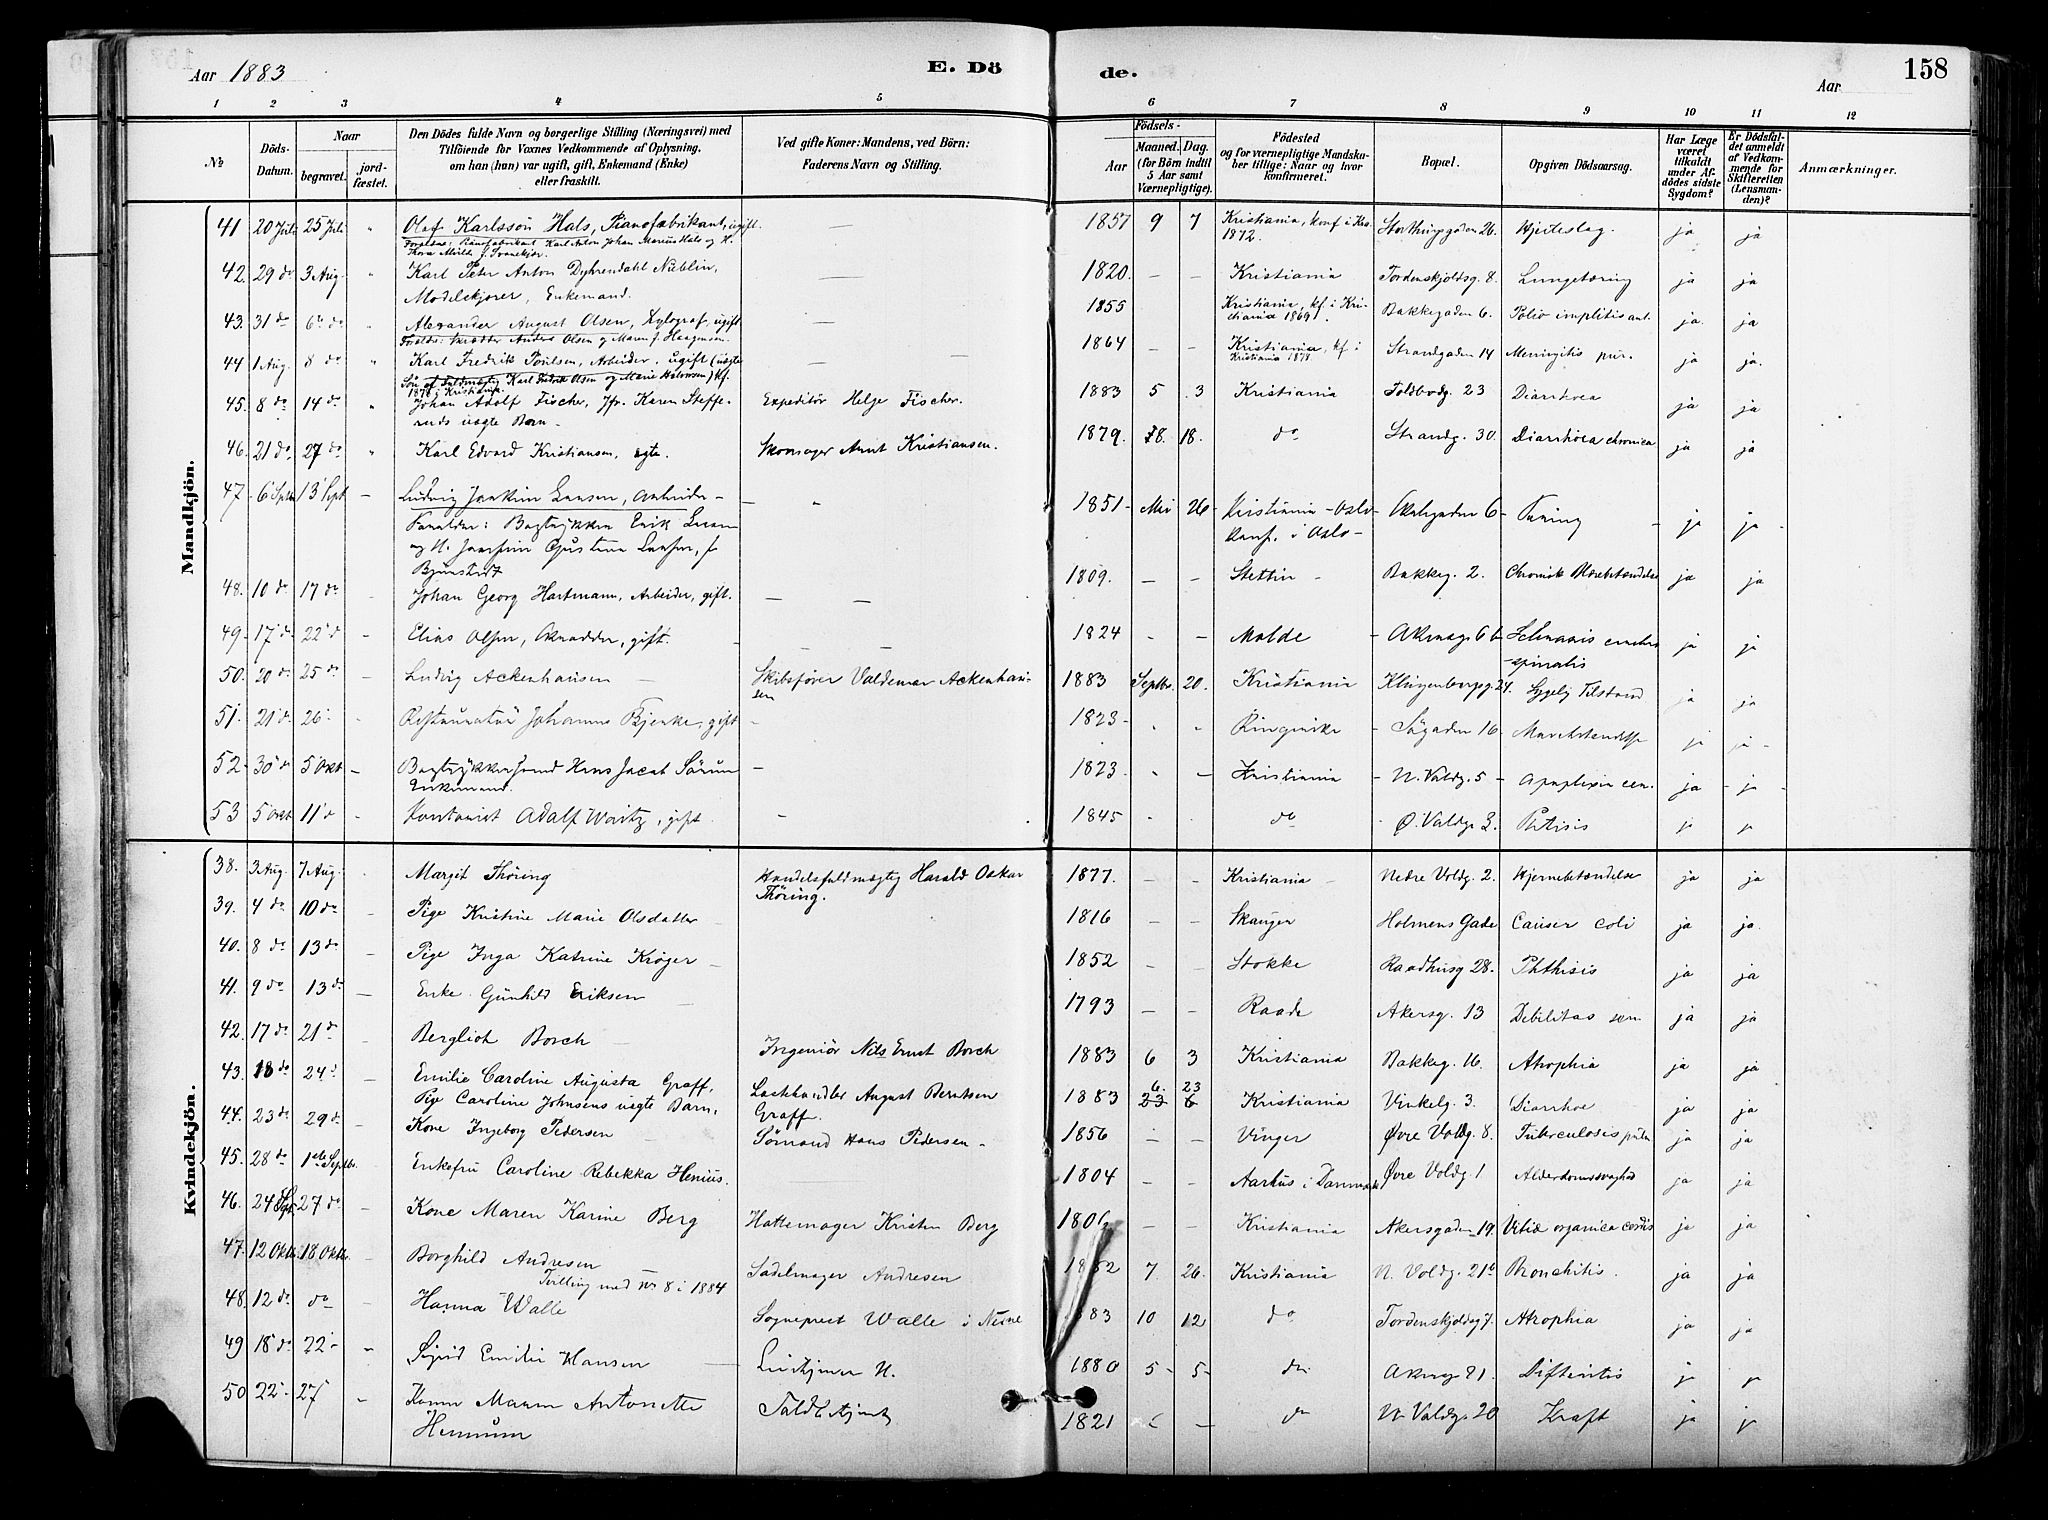 Aar 1883
E. Dö
de.
Aar
158
1 2 3 4 5 6 7 8 9 10 11 12
№
Döds-Datum.
Naar
begravet.
jord-fæstet.
Den Dödes fulde Navn og borgerlige Stilling (Næringsvei) med
Tilföiende for Voxnes Vedkommende af Oplysning,
om han (hun) var ugift, gift, Enkemand (Enke)
eller fraskilt.
Ved gifte Koner: Mandens, ved Börn:
Faderens Navn og Stilling.
Födsels-
Aar
Maaned. Dag.
(for Börn indtil
5 Aar samt
Værnepligtige).
Födested
og for værnepligtige Mandska-
ber tillige: Naar og hvor
konfirmeret.
Bopæl.
Opgiven Dödsaarsag.
Har Læge
været
tilkaldt
under Af-
dödes sidste
Sygdom?
Er Dödsfal-
det anmeldt
af Vedkom-
mende for
Skifteretten
(Lensman-
den)?
Anmærkninger.
Mandkjön.
41 20 Juli 25 Juli " Olaf Karlsson Hals, Pianofabrikant, ugift — 1857 9 7 Kristiania, konf i Kra 1872. Storthingsgaden 26. Hjerteslag ja ja
Forældre: Pianofabrikant Karl Anton Johan Marius Hals og H.
42. 29 do 3 Aug. " Karl Peter Anton Dyhrendahl Nüblin, — 1820. — — Kristiania Tordenskjoldsg. 8. Lungetæring ja ja
Enkemand.
43. 31 do 6te do " Alexander August Olsen, Xylograf, ugift — 1855 Kristiania, kf. i Kristiania 1869. Bakkegaden 6. ja. ja
44 1 Aug. 8 do " Karl Fredrik Poulsen, Arbeider, ugift (uægte — 1864 — — Kristiania, kf i Kristiania 1878. Strandgaden 14 Meningitis pur. ja ja.
Karl Fredrik Olsen og Marie Halvorsen) kf.
1878 i Kristiania.
45. 8 do 14 do " Johan Adolf Fischer, Jfr. Karen Steffe- Expeditör Helge Fischer. 1883 5 3 Kristiania Toldbodg. 23 Diarrhoea ja ja
ruds uægte Barn.
46. 21 do 27 do " Karl Edvard Kristiansen, ægte. Skomager Arnt Kristiansen. 1879. 8. 18. do Strandg. 30. Diarrhoea chronica ja ja
47 6 Sptb 13 Sept — Ludvig Joakim Larsen, Arbeider — " 1851 Mai 26 Kristiania - Oslo Akersgaden 6 Tæring ja ja
Forældre: Bogtrykker Erik Larsen Konf. i Oslo
48. 10 do 17 do Johan Georg Hartmann, Arbeider, gift. — — 1809. — — Stettin Bakkeg. 2. ja ja
49 17 do 22 do Elias Olsen, gift. — 1824 Molde ja ja
spinalis
50. 20 do 25 do Ludvig Ackenhausen — Skibsfører Valdemar Ackenhau-sen 1883 Septbr. 20. Kristiania Klingenbergg. 24. Sygelig Tilstand ja ja
51. 21 do 26 Restauratör Johannes Bjerke, gift — 1823 Søgaden 16 ja ja
52 30 do 5 Okt — Hans Jacob Sörum — 1823. Kristiania N. Voldg. 5 Apoplexia cer. ja ja
Enkemand.
53 5 Okt 11 do Kontorist Adolf Woritz, gift — 1845 do Ø. Voldg. 3. Phtisis ja ja
Kvindekjön.
38. 3 Aug. 7 Aug. Margit Thöring Handelsfuldmægtig Harald Oskar Thöring. 1877. — — Kristiania Nedre Voldg. 2. Hjernebetændelse ja ja
39. 4 do 10 do Pige Kristine Marie Olsdatter 1816 — — Skanger Holmens Gade Cancer coli ja ja.
40. 8 do 13 do Pige Inga Katrine Krøger 1852 — — Stokke Raadhusg 28. Phthisis ja ja
41. 9 do 13 do — Enke Gunhild Eriksen 1793 — — Raade Akersg. 13 Debilitas sen ja ja
42. 17 do 21 do Bergliot Borch Ingeniör Nils Ernst Borch 1883 6 3 Kristiania Bakkeg. 16. Atrophia ja ja
43. 18 do 24 do Emilie Caroline Augusta Graff, August Berntsen Graff. 1883 6. 23 23 6 Kristiania Vinkelg. 3. Diarrhoe ja ja
Pige Caroline Johnsens uægte Barn.
44. 23 do 29 do Kone Ingeborg Pedersen Sømand Hans Pedersen 1856 — — Vinger Øvre Voldg. 8. Tuberculosis pulm ja ja
45. 28 do 1ste Septbr. Enkefru Caroline Rebekka Henius. 1804 — — Aarhus i Danmark Øvre Voldg. 1 Alderdomssvaghed ja ja
46. 24 Spt. 27 do Kone Maren Karine Berg Hattemager Kristen Berg 1806 — — Kristiania Akersgaden 19. Vitia organica cordis ja ja
47. 12 Oktbr. 18 Oktbr. Borghild Andresen Sadelmager Andresen 1882 7. 26. Kristiania N. Voldg. 21b Bronchitis. ja ja
Tvilling med No 8 i 1884
48. 12 do do Hanna Walle Sogneprest Walle i Nesne 1883 10 12 do Tordenskjoldsg 7. Atrophia ja ja
49 18 do 22 " Sigrid Emilie Hansen H. 1880 5 5 do Akersg 21. Difteritis ja ja
50 22 27 " Maren Antonette Hennum 1821 — do N. Voldg. 20 Kræft ja ja